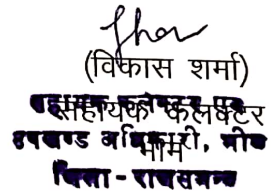 (विकास शर्मा)
सहायक कलेक्टर
भीम
सहायक कलेक्टर एवं
उपखण्ड अधिकारी, भीम
जिला - राजसमन्द